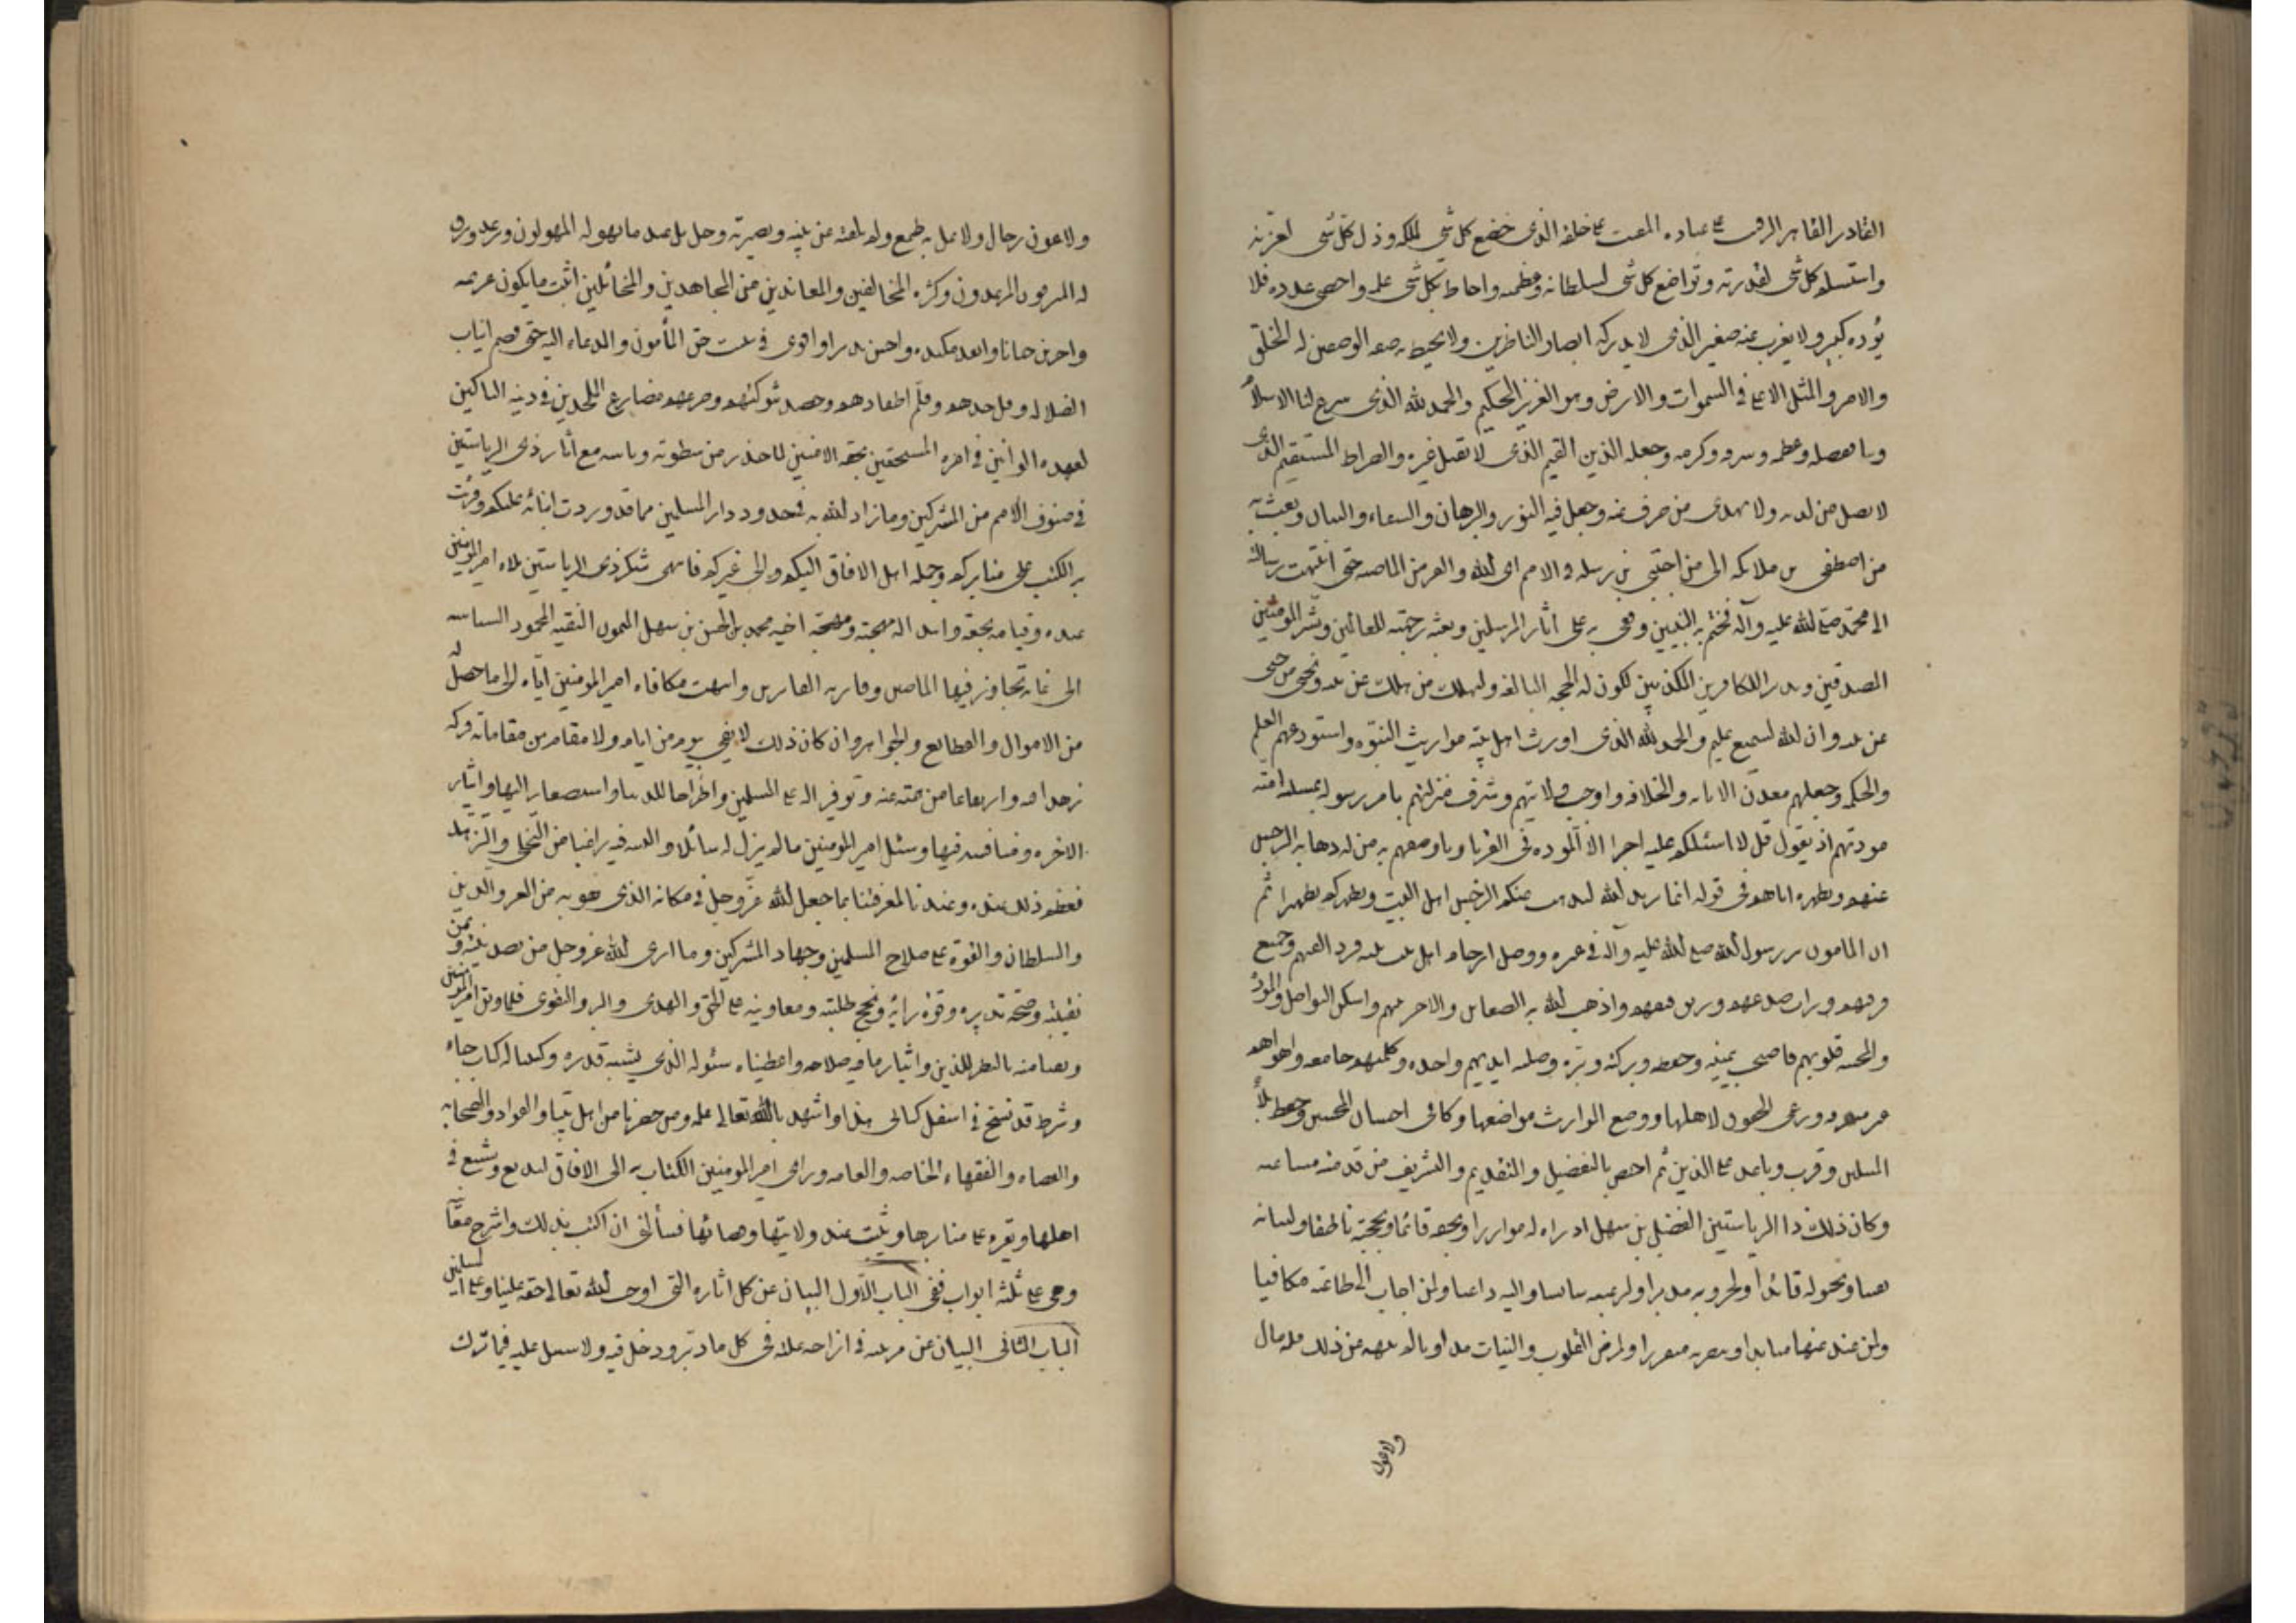 القادر القاهر الرقيب على عباده المقيت على خلقه الذى خضع كل شئ لملكه وذل كل شئ لعزته
واستسلم كل شئ لقدرته وتواضع كل شئ لسلطانه وعظمته واحاط بكل شئ علمه واحصى عدده فلا
يؤده كبير ولا يعزب عنه صغير الذى لا يدركه ابصار الناظرين ولا يحيط به صفه الواصفين له الخلق
والامر والمثل الاعلى فى السموات والارض وهو العزيز الحكيم والحمد لله الذى شرع لنا الاسلام
دينا ففضله وعظمه وشرفه وكرمه وجعله الدين القيم الذى لا تقبل غيره والصراط المستقيم الذى
لا يضل من لزمه ولا يهدى من صرف عنه وجعل فيه النور والبرهان والشفاء والبيان وبعث به
من اصطفى من ملائكه الى من اجتبى من رسله فى الامم الخاليه والقرون الماضيه حتى انتهت رسالته
الى محمد صلى الله عليه وآله فختم به النبيين وقفى به على اثار المرسلين وبعثه رحمة للعالمين وبشر المؤمنين
المصدقين ونذيرا للكافرين المكذبين لتكون له الحجه البالغه وليهلك من هلك عن بينه ويحيى من حى
عن بينه وان الله لسميع عليم والحمد لله الذى اورث اهل بيته مواريث النبوه واستودعهم العلم
والحكمه وجعلهم معدن الامامه والخلافه واوجب ولايتهم وشرف منزلتهم بامر رسوله بمسئله امته
مودتهم اذ يقول قل لا اسئلكم عليه اجرا الا الموده فى القربا وما وصفهم به من اذهابه الرجس
عنهم وتطهيره اياهم فى قوله انما يريد الله ليذهب عنكم الرجس اهل البيت ويطهركم تطهيرا ثم
ان المامون بر رسول الله صلى الله عليه وآله فى عتره ووصل ارحام اهل بيته فرد الفتهم وجمع
فرقتهم وراب صدعهم ورتق فتقهم واذهب الله به الضغاين والاحن بينهم واسكن التواصل والمودة
والمحبه قلوبهم فاصبحت بيمنه وحفظه وبركته وبره وصلته ايديهم واحده وكلمتهم جامعه واهواهم
متفقه ورعى الحقوق لاهلها ووضع المواريث مواضعها وكافى احسان المحسنين وحفظ بلاء
المبلين وقرب وباعد على الدين ثم اختص بالتفضيل والتقديم والتشريف من قدمته مساعيه
وكان ذلك ذا الرياستين الفضل بن سهل اذ راه له موازرا وبحقه قائما وبحجته ناطقا ولنقبائه
نقيبا ولخيوله قائدا ولحروبه مدبرا ولرعيته سائسا واليه داعيا ولمن اجاب الى طاعته مكافيا
ولمن عند عنها مباينا وبنصره متفردا ولمرض القلوب والنيات مداويا لم ينهه من ذلك قله مال
ولاعون
ولا عون رجال ولا يمل به طمع ولم يلفته عن نيته وبصيرته وجل بل عند ما يهوله المهولون ويرعد ويبرق
له المبرقون المرعدون وكثره المخالفين والمعاندين من المجاهدين والمخاتلين اثبت ما يكون عزيمه
واجرئ جنانا وانفذ مكيده واحسن تدبيرا واقوى فى تثبيت حق المأمون والدعاء اليه حتى قصم انياب
الضلاله وفل حدهم وقلم اظفارهم وحصد شوكتهم وصرعهم مصارع الملحدين فى دينه الناكثين
لعهده الوانين فى امره المستخفين بحقه الامنين لما حذر من سطوته وباسه مع اثار ذى الرياستين
فى صنوف الامم من المشركين وما زاد الله به فى حدود دار المسلمين مما قد وردت انبائه عليكم وقرئت
به الكتب على منابركم وحمله اهل الافاق اليكم والى غيركم فانتهى شكر ذى الرياستين بلاء امير المومنين
عنده وقيامه بحقه وابتذاله مهجته ومهجة اخيه محمد بن الحسن بن سهل الميمون النقيبه المحمود السياسه
الى غايه تجاوز فيها الماضين وفاز به الفائزين وانتهت مكافاه امير المومنين اياه الى ما حصل له
من الاموال والقطايع والجواهر وان كان ذلك لا يفى بيوم من ايامه ولا مقام من مقاماته فتركه
زهدا فيه وارتفاعا من همته عنه وتوفيرا له على المسلمين واطراحا للدنيا واستصغارا لها وايثارا
للاخره ومنافسه فيها وسئل امير المومنين ما لم يزل له سائلا واليه فيه راغبا من التخلى والتزهد
فعظم ذلك عنده وعندنا لمعرفتنا بما جعل الله عز وجل فى مكانه الذى هو به من العز والدين
والسلطان والقوة على صلاح المسلمين وجهاد المشركين وما ارى الله عز وجل من تصديق نيته ويمن
نقيبته وصحة تدبيره وقوة رأيه ونجح طلبته ومعاونته على الحق والهدى والبر والتقوى فلما وثق امير المومنين
وثقنا منه بالنظر للدين وايثار ما فيه صلاحه واعطيناه سئوله الذى يشبه قدره وكتبنا له كتاب حباء
وشرط قد نسخ فى اسفل كتابى هذا واشهدنا الله تعالى عليه ومن حضرنا من اهل بيتنا والقواد والصحابه
والقضاه والفقهاء والخاصه والعامه وراى امير المومنين الكتاب به الى الافاق ليذيع ويشيع فى
اهلها ويقرء على منابرها ويثبت عند ولاتها وقضاتها فسألنى ان اكتب بذلك واشرح معانيه
وهى على ثلثه ابواب ففى الباب الاول البيان عن كل اثاره التى اوجب الله تعالى حقه علينا وعلى المسلمين
الباب الثانى البيان عن مرتبته فى ازاحه علته فى كل ما دبر ودخل فيه ولا سبيل عليه فيما ترك